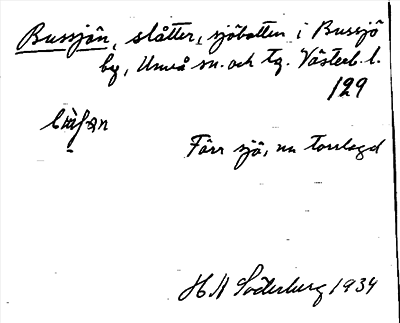 Bussjön, slåtter, sjöbotten i Bussjö
by, Umeå sn. och tg. Västerb. l.
129
Förr sjö, nu torrlagd
H A Söderberg 1934